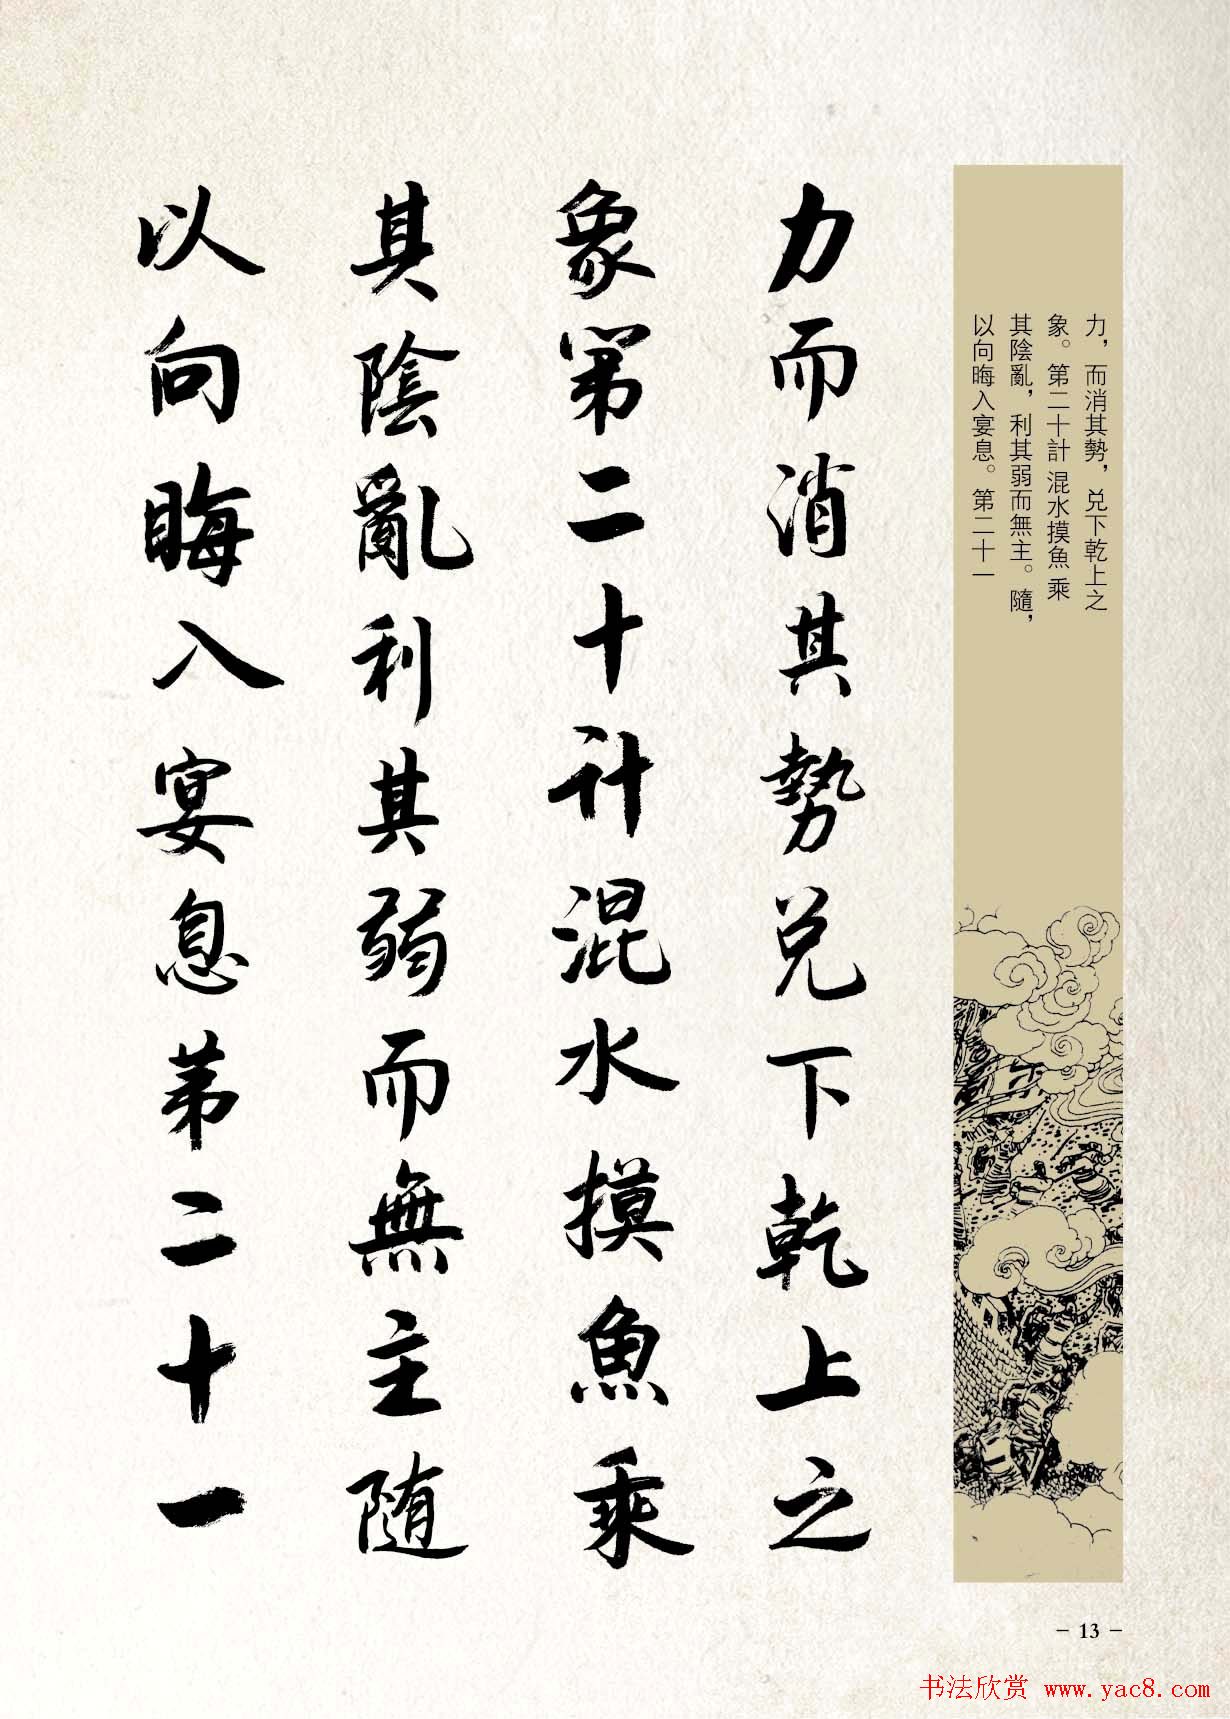 力，而消其勢，兑下乾上之
象。第二十計 混水摸魚 乘
其陰亂，利其弱而無主。隨，
以向晦入宴息。第二十一
力而消其勢兑下乾上之
象第二十计混水摸魚乘
其陰亂利其弱而無主随
以向晦入宴息第二十一
- 13 -
书法欣赏 www.yac8.com